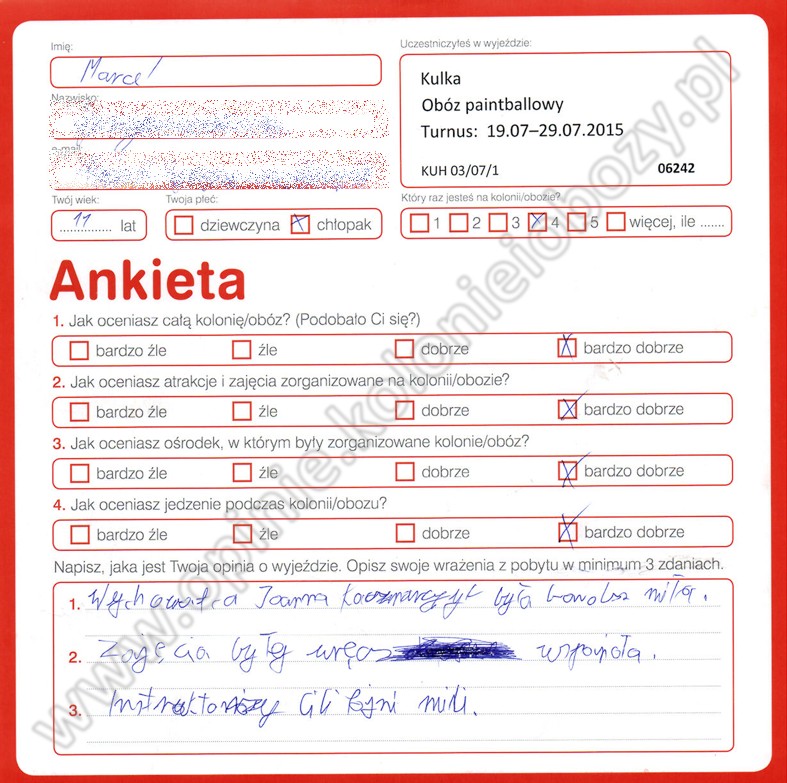 Imię:
Uczestniczyłeś w wyjeździe:
Marcel
Kulka
Obóz paintballowy
Turnus: 19.07–29.07.2015
KUH 03/07/1 06242
Nazwisko:
e-mail:
Twój wiek:
11 lat
Twoja płeć:
dziewczyna X chłopak
Który raz jesteś na kolonii/obozie?
1 2 3 X 4 5 więcej, ile .......
Ankieta
1. Jak oceniasz całą kolonię/obóz? (Podobało Ci się?)
bardzo źle źle dobrze X bardzo dobrze
2. Jak oceniasz atrakcje i zajęcia zorganizowane na kolonii/obozie?
bardzo źle źle dobrze X bardzo dobrze
3. Jak oceniasz ośrodek, w którym były zorganizowane kolonie/obóz?
bardzo źle źle dobrze X bardzo dobrze
4. Jak oceniasz jedzenie podczas kolonii/obozu?
bardzo źle źle dobrze X bardzo dobrze
Napisz, jaka jest Twoja opinia o wyjeździe. Opisz swoje wrażenia z pobytu w minimum 3 zdaniach.
1. Joanna była miła.
2. Zajęcia były wręcz
3. mili.
www.opinie.kolonieiobozy.pl